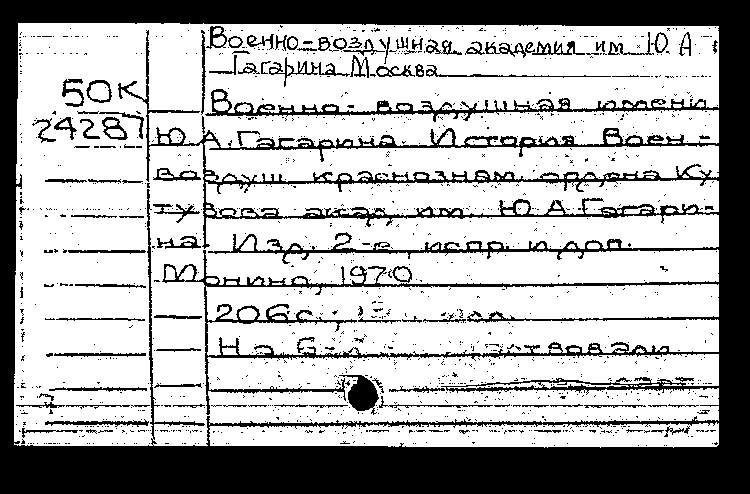 Военно-воздушная академия им Ю.А.
Гагарина Москва
50К
24287
Военно-воздушная имени
Ю.А.Гагарина. История Воен-
воздуш. краснознам. ордена Ку-
тузова акад. им. Ю.А.Гагари-
на. Изд. 2-е, испр. и доп.
Монино, 1970
206с.;
На